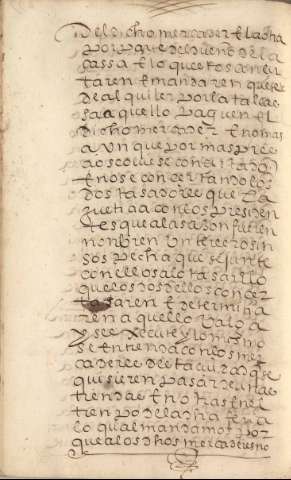 Del dicho mercader E la otra
por parte del dueño de la
cassa E lo que estos an en
taren E mandaren que se
de al quiler por la tal cas
sa aquello paguen el
dicho mercader E no mas
aun que por mas pre
cio se
E no se concertando los
dos tasadores que la
justicia con los presiden
tes que a la sazon fueren
nonbren un tercero sin
sospecha que se junte
con ellos a lo tasar lo
que los dos dellos concer
taren E determina
ren aquello vala
y se execute y lo mismo
se entienda con los mer
caderes desta ciudad que
quisieren pasar de una
tienda E no tras en el
tienpo de la dha feria
lo qual mandamos por
que a los dhos mercaderes no